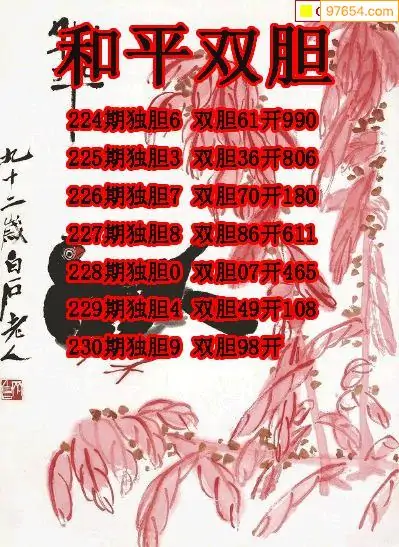 97654.com
和平双胆
224期独胆6 双胆61开990
225期独胆3 双胆36开806
226期独胆7 双胆70开180
227期独胆8 双胆86开611
228期独胆0 双胆07开465
229期独胆4 双胆49开108
230期独胆9 双胆98开
九十二岁白石老人